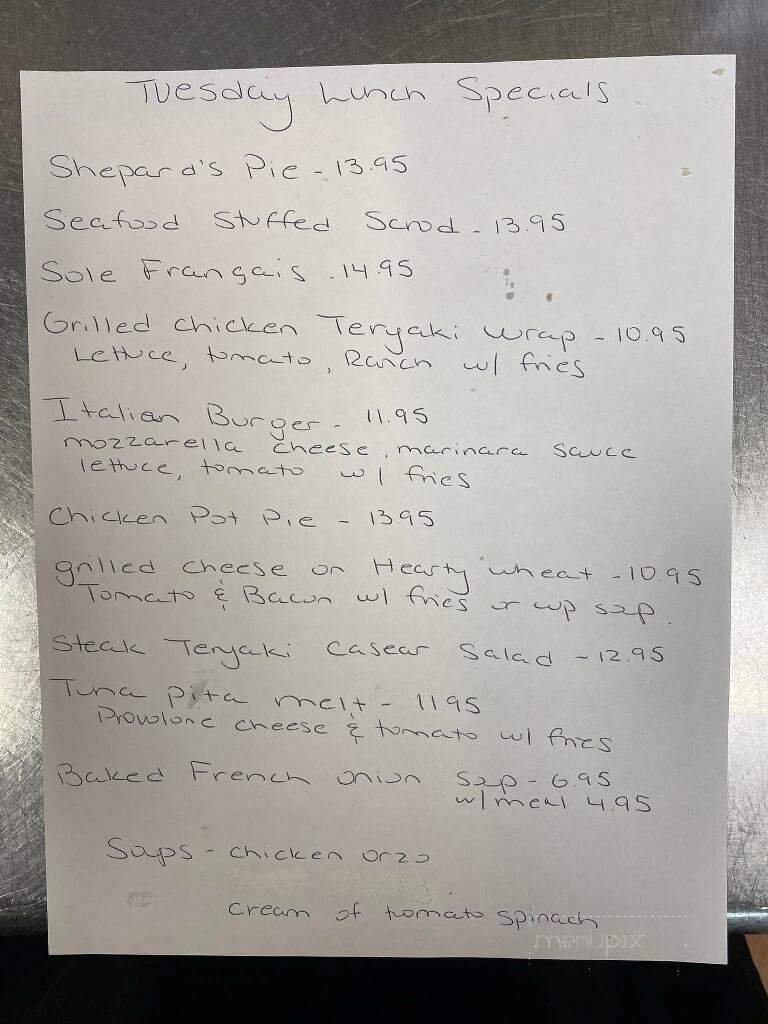 Tuesday Lunch Specials
Shepard's Pie - 13.95
Seafood Stuffed Scrod - 13.95
Sole Français - 14.95
Grilled chicken Teryaki wrap - 10.95
Lettuce, tomato, Ranch w/ fries
Italian Burger - 11.95
mozzarella cheese, marinara sauce
lettuce, tomato w/ fries
Chicken Pot Pie - 13.95
grilled cheese on Hearty wheat - 10.95
Tomato & Bacon w/ fries or cup soup.
Steak Teryaki Casear Salad - 12.95
Tuna pita melt - 11.95
Provolone cheese & tomato w/ fries
Baked French onion soup - 6.95
w/ meal 4.95
Soups - chicken orzo
cream of tomato spinach
menupix